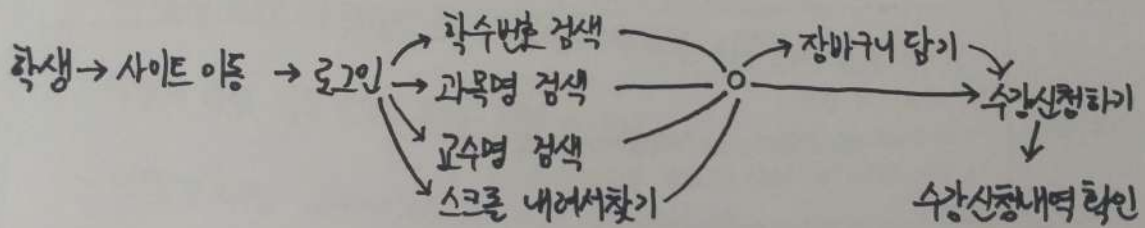 학생 → 사이트 이동 → 로그인
학수번호 검색
과목명 검색
교수명 검색
스크롤 내려서찾기
장바구니 담기
수강신청하기
수강신청내역 확인